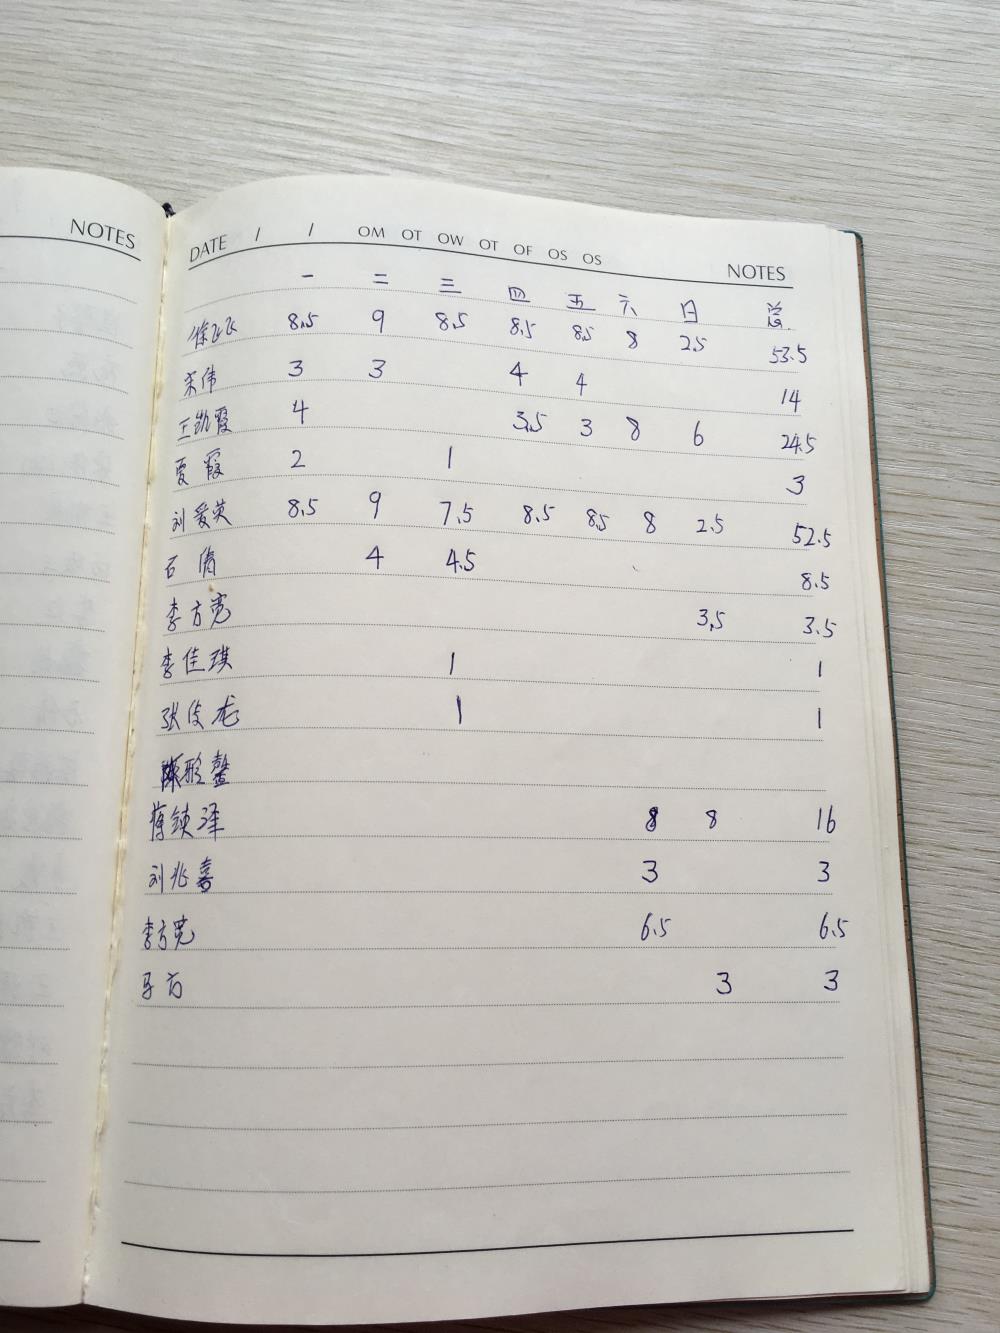 NOTES
DATE / / OM OT OW OT OF OS OS NOTES
一 二 三 四 五 六 日 总
徐飞飞 8.5 9 8.5 8.5 8.5 8 2.5 53.5
宋伟 3 3 4 4 14
王凯霞 4 3.5 3 8 6 24.5
夏霞 2 1 3
刘爱英 8.5 9 7.5 8.5 8.5 8 2.5 52.5
石倩 4 4.5 8.5
李方宽 3.5 3.5
李佳琪 1 1
张俊龙 1 1
陈彤鳌
蒋锬泽 8 8 16
刘兆喜 3 3
李方宽 6.5 6.5
马方 3 3